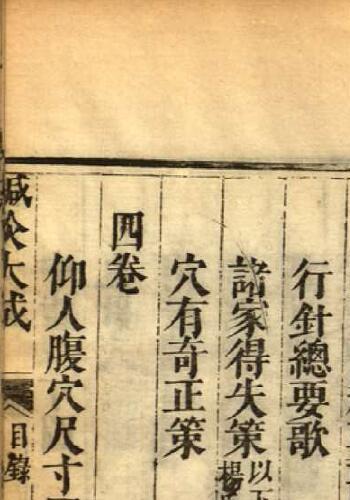 行針總要歌
諸家得失策 以
楊
穴有奇正策
四卷
仰人腹穴尺寸
大成
目錄